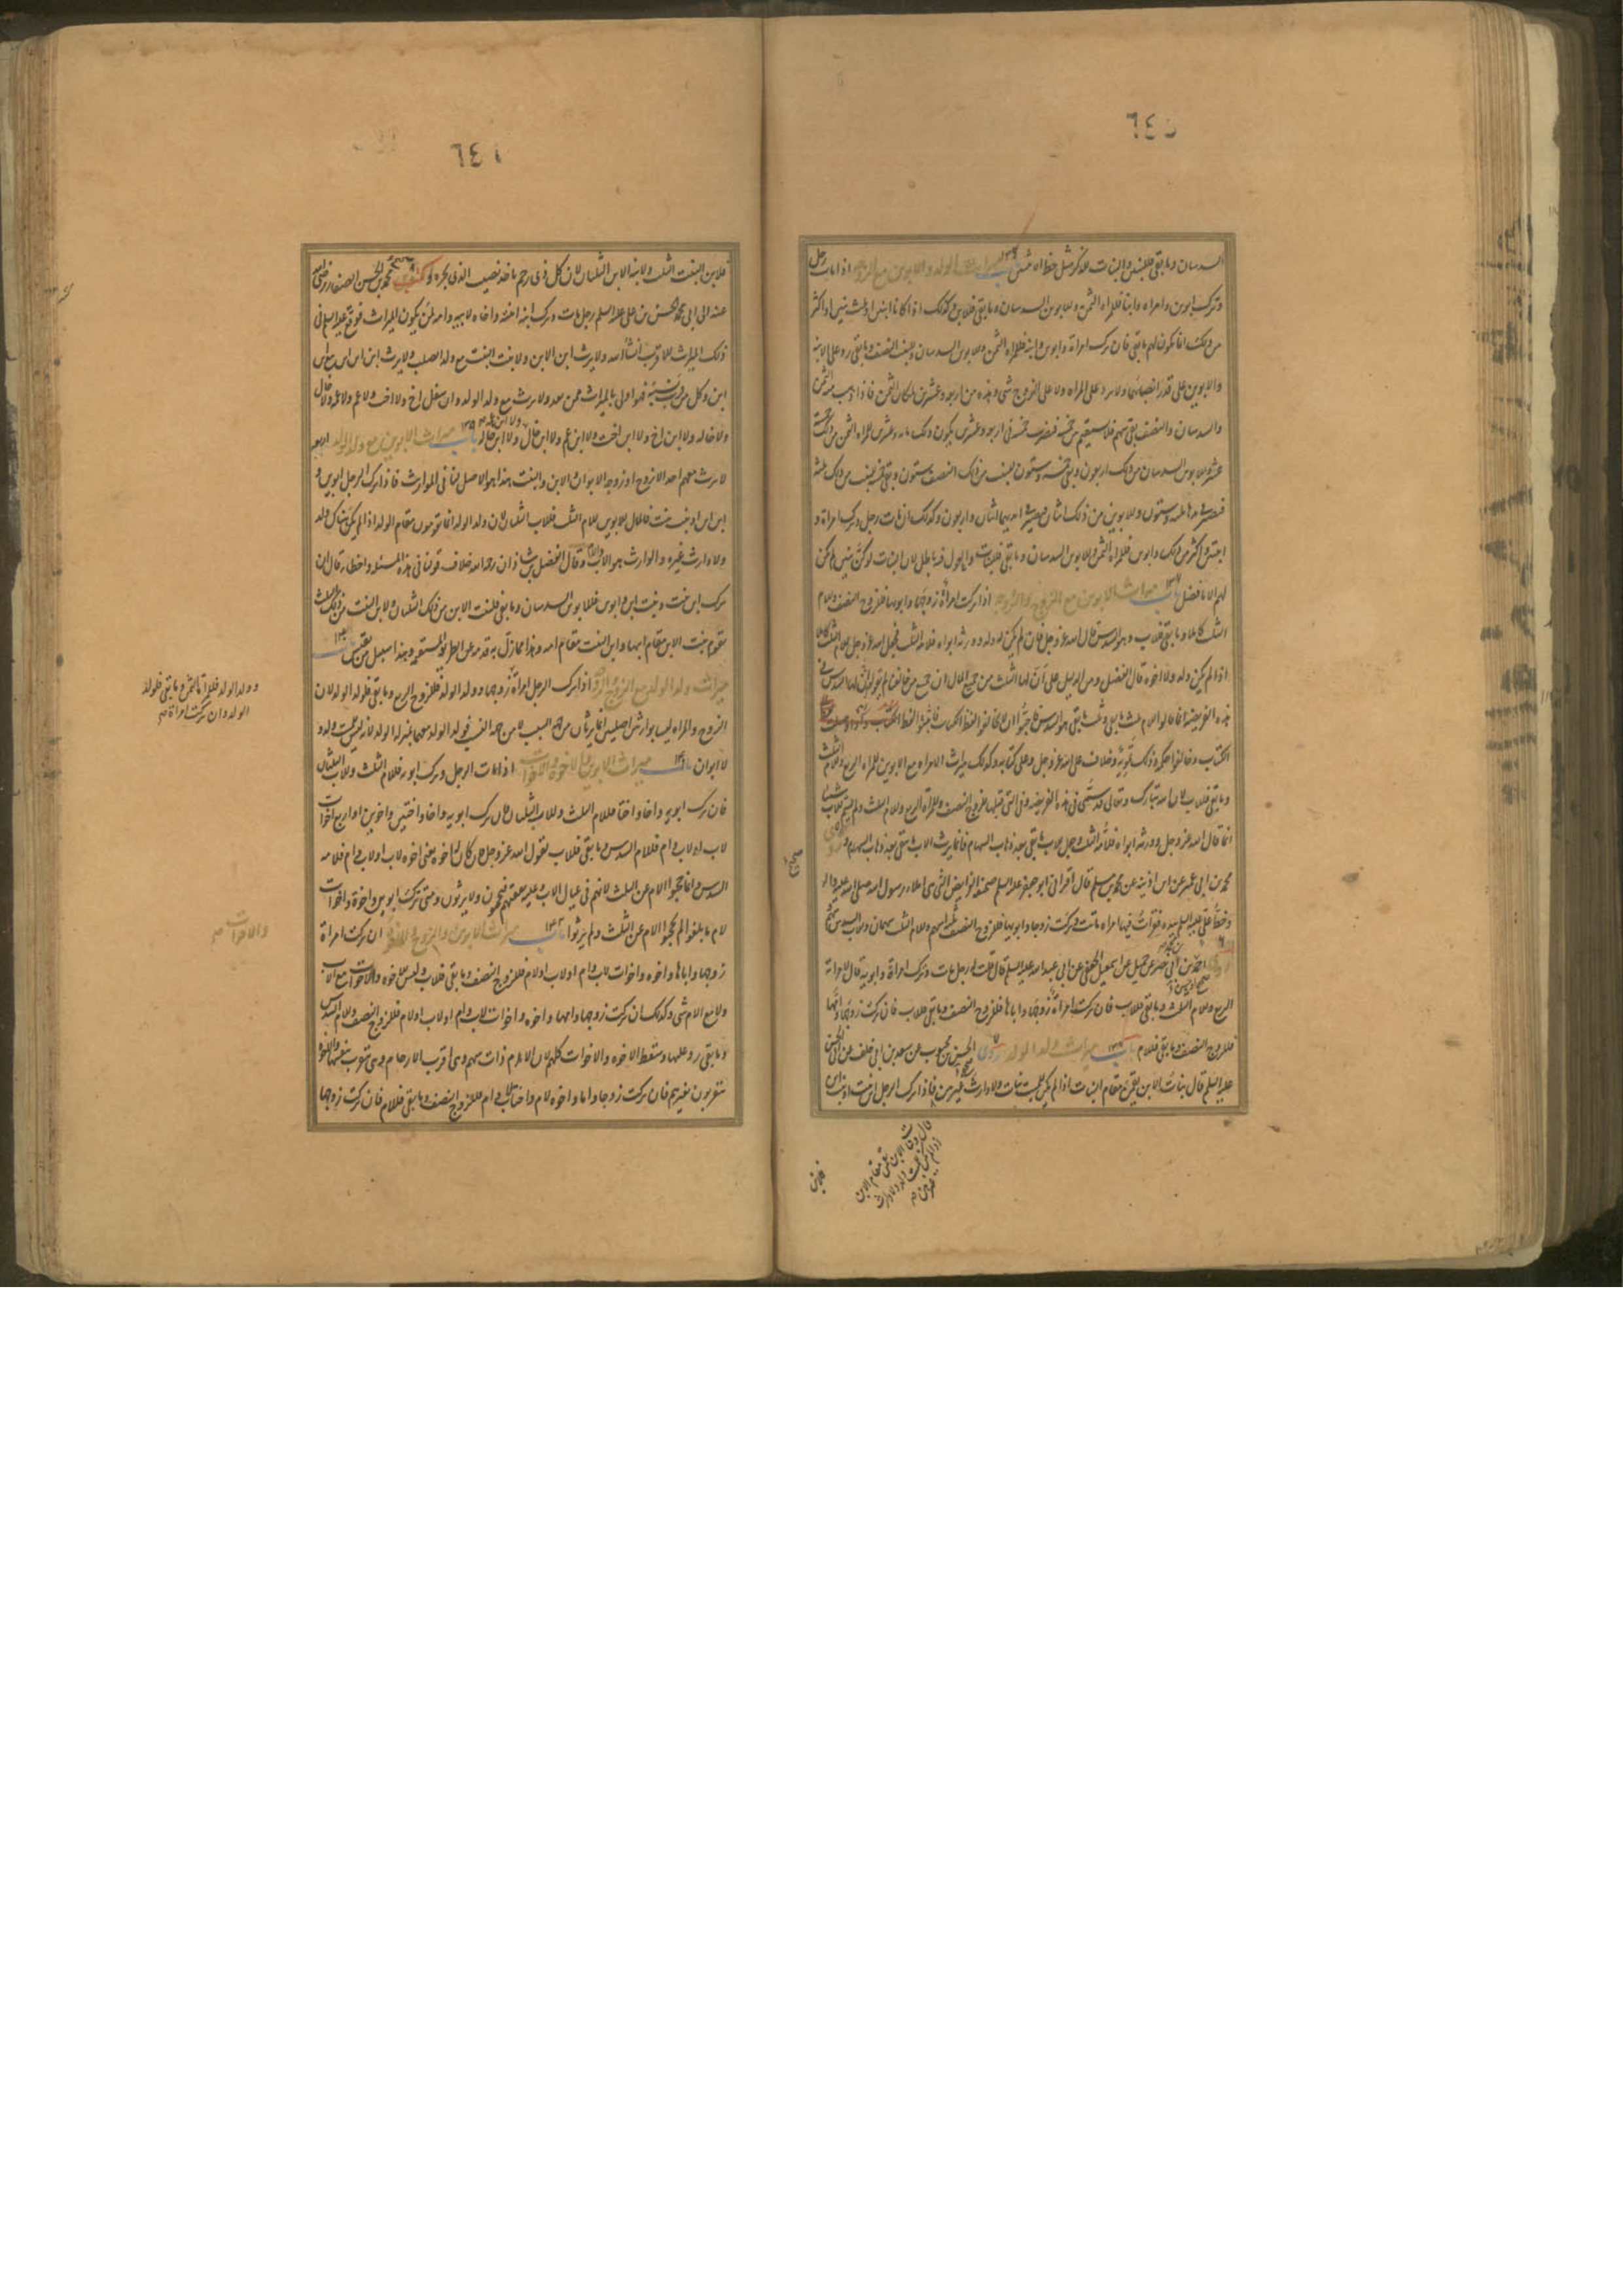 ٦٤٠
السدسان وما بقى فللبنين والبنات للذكر مثل حظ الانثيين باب ميراث الولد والابوين مع الزوج اذا مات رجل
وترك ابوين وامراه وابنا فللمراه الثمن وللابوين السدسان وما بقى فللابن وكذلك اذا كانا ابنين او ثلث بنين او اكثر
من ذلك انما يكون لهم ما بقى فان ترك امراة وابوين وابنة فللمراه الثمن وللابوين السدسان وللبنت النصف وما بقى رد على الابنة
والابوين على قدر انصبائهما ولا يرد على المراه ولا على الزوج شى وهذه من اربعه وعشرين لمكان الثمن فاذا ذهب منه الثمن
والسدسان والنصف بقى سهم فلا يستقيم بين خمسه فيضرب خمسه فى اربعه وعشرين يكون ذلك مائه وعشرين للمراه الثمن من ذلك خمسة
عشر وللابوين السدسان من ذلك اربعون وبقى خمسه وستون للبنت من ذلك النصف ستون وبقى خمسه للبنت من ذلك ثلثه
فيصير فى يدها ثلثه وستون وللابوين من ذلك اثنان فيصير فى ايديهما اثنان واربعون وكذلك ان مات رجل وترك امراة و
ابنتين واكثر من ذلك وابوين فللمراه الثمن وللابوين السدسان وما بقى فللبنات والعول فيه باطل لان البنات لو كن بنين لم يكن
لهم الا ما فضل باب ميراث الابوين مع الزوج والزوجه اذا تركت امراة زوجها وابويها فللزوج النصف وللام
الثلث كاملا وما بقى فللاب وهو السدس قال الله عز وجل فان لم يكن له ولد وورثه ابواه فلامه الثلث فجعل الله عز وجل للام الثلث كاملا
اذا لم يكن ولد ولا اخوه قال الفضل ومن الدليل على ان لها الثلث من جميع المال ان جميع من خالفنا لم يقولوا ان لها السدس فى
هذه الفريضه انما قالوا للام ثلث ما بقى وثلث ما بقى هو السدس فاحبوا ان لا يخالفوا لفظ الكتاب فاثبتوا لفظ
الكتاب وخالفوا حكمه وذلك تمويه وخلاف على الله عز وجل وعلى كتابه وكذلك ميراث الامراه مع الابوين للمراه الربع وللام الثلث
وما بقى فللاب لان الله تبارك وتعالى قد سمى فى هذه الفريضه وفى التى قبلها للزوج النصف وللمراة الربع وللام الثلث ولم يسم للاب شيئا
انما قال الله عز وجل وورثه ابواه فلامه الثلث وجعل للاب ما بقى بعد ذهاب السهام فانما يرث الاب ما بقى بعد ذهاب السهام روى
محمد بن ابى عمير عن ابن اذينه عن محمد بن مسلم قال اقرانى ابو جعفر عليه السلم صحيفة الفرايض التى هى املاء رسول الله صلى الله عليه واله
وخط على عليه السلم بيده فقرات فيها امراه ماتت وتركت زوجها وابويها فللزوج النصف ثلثه اسهم وللام الثلث سهمان وللاب السدس سهم
روى احمد بن محمد بن ابى نصر عن جميل عن اسمعيل الجعفى عن ابى عبد الله عليه السلم قال قلت له رجل مات وترك امراة وابويه قال لامراته
الربع وللام الثلث وما بقى فللاب فان تركت امراة زوجها واباها فللزوج النصف وما بقى فللاب فان تركت زوجها وامها
فللزوج النصف وما بقى فللام باب ميراث ولد الولد روى الحسن بن محبوب عن سعد بن ابى خلف عن ابى الحسن
عليه السلم قال بنات الابن يقمن مقام البنات اذا لم يكن للميت بنات ولا وارث غيرهن فاذا ترك الرجل ابن بنت وابنة ابن
فلابن
٦٤١
فلابن البنت الثلث ولابنة الابن الثلثان لان كل ذى رحم ياخذ نصيب الذى يجره وكتب محمد بن الحسن الصفار رضى الله
عنه الى ابى محمد الحسن بن على عليه السلم رجل مات وترك ابنة ابنته واخاه لابيه وامه لمن يكون الميراث فوقع عليه السلم فى
ذلك الميراث للاقرب انشا الله ولا يرث ابن الابن ولا بنت البنت مع ولد الصلب ولا يرث ابن ابن ابن مع ابن
ابن وكل من قرب نسبه فهو اولى بالميراث ممن بعد ولا يرث مع ولد الولد وان سفل اخ ولا اخت ولا عم ولا عمه ولا خال
ولا خاله ولا ابن اخ ولا ابن اخت ولا ابن عم ولا ابن خال ولا ابن عمه ولا ابن خاله باب ميراث الابوين مع ولد الولد اربعه
لا يرث معهم احد الا زوج او زوجه الابوان والابن والبنت هذا هو الاصل لنا فى المواريث فاذا ترك الرجل ابوين و
ابن ابن او بنت بنت فالمال للابوين للام الثلث فللاب الثلثان لان ولد الولد انما يقومون مقام الولد اذا لم يكن هناك ولد
ولا وارث غيره والوارث هو الاب والام وقال الفضل بن شاذان رحمه الله خلاف قولنا فى هذه المسئله واخطا قال ان
ترك ابن بنت وبنت ابن وابوين فللابوين السدسان وما بقى فلبنت الابن من ذلك الثلثان ولابن البنت من ذلك الثلث
تقوم بنت الابن مقام ابيها وابن البنت مقام امه وهذا مما زل به قدمه عن الطريق المستقيم وهذا سبيل من يقيس باب
ميراث ولد الولد مع الزوج والزوجه اذا ترك الرجل امراة زوجها وولد الولد فللزوج الربع وما بقى فلولد الولد لان
الزوج والمراه ليسا بوارثين اصليين انما يرثان من جهه السبب لا من جهه النسب فولد الولد معهما بمنزله الولد لانه ليس للميت ولد و
لا ابوان باب ميراث الابوين والاخوة والاخوات اذا مات الرجل وترك ابويه فللام الثلث وللاب الثلثان
فان ترك ابويه واخا او اختا فللام الثلث وللاب الثلثان فان ترك ابويه واخا واختين واخوين او اربع اخوات
لاب او لاب وام فللام السدس وما بقى فللاب لقول الله عز وجل فان كان له اخوه يعنى اخوه لاب او لاب وام فلامه
السدس وانما حجبوا الام عن الثلث لانهم فى عيال الاب وعليه نفقتهم فيحجبون ولا يرثون ومتى تركت ابوين واخوة واخوات
لام ما بلغوا لم يحجبوا الام عن الثلث ولم يرثوا باب ميراث الابوين والزوج والاخوة ان تركت امراة
زوجها واباها واخوه واخوات لاب وام او لاب او لام فللزوج النصف وما بقى فللاب وليس للاخوه والاخوات مع الاب
ولا مع الام شى وكذلك ان تركت زوجها وامها واخوه واخوات لاب وام او لاب او لام فللزوج النصف وللام السدس
وما بقى رد عليها وسقط الاخوه والاخوات كلهم لان الام ذات سهم وهى اقرب الارحام وهى تتقرب بنفسها والاخوه
يتقربون بغيرهم فان تركت زوجا واما واخوة لام واختا لاب وام فللزوج النصف وما بقى فللام فان تركت زوجها
وولد الولد فللمراة الثمن وما بقى فلولد
الولد وان تركت امراة
والاخوات